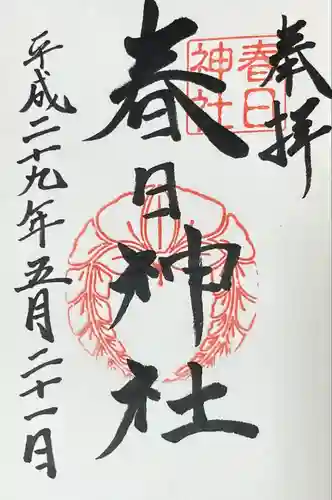 奉拝
春日神社
春日神社
平成二十九年五月二十一日